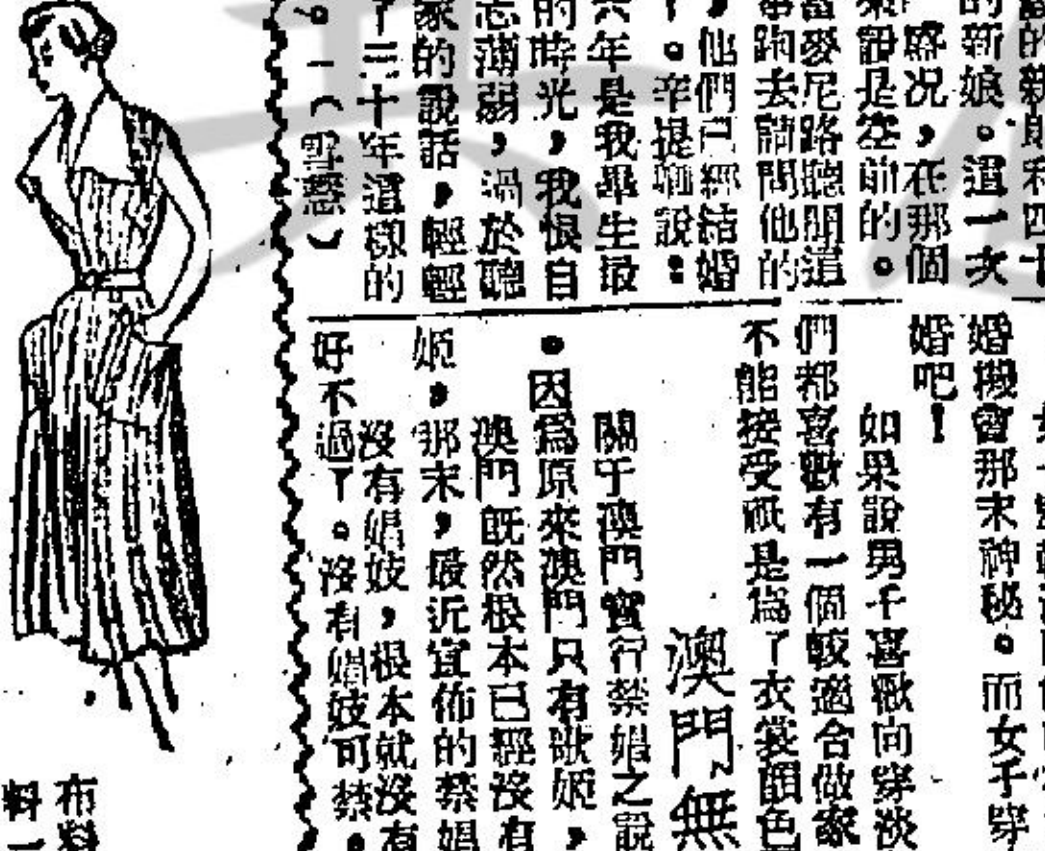 的新娘。這一次
盛况，在那個
是空前的。
當麥尼路聽聞這
事跑去詰問他的
，他們已經結婚
。辛提說：
六年是我畢生最
的時光，我恨自
志薄弱，過於聽
家的說話，輕輕
了三十年這樣的
婚機會那末神秘。而女子穿
婚吧！
如果說男子喜歡向穿淡
們都喜歡有一個較適合做家
不能接受祇是爲了衣裳顏色
澳門無
關于澳門實行禁娼之說
。因爲原來澳門只有歌姬，
澳門既然根本已經沒有
姬，那末，最近宣佈的禁娼
沒有娼妓，根本就沒有
好不過了。沒有娼妓可禁。
布料
料一